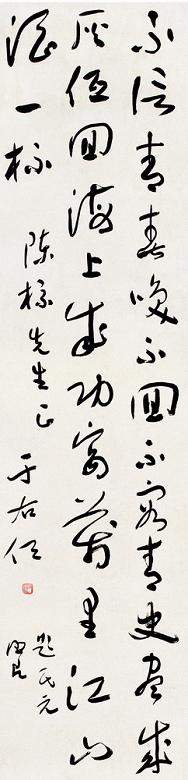 不信青春喚不回不容青史盡成
灰低回海上成功宴萬里江山
酒一杯
陳先生正
于右任
題民元
照片